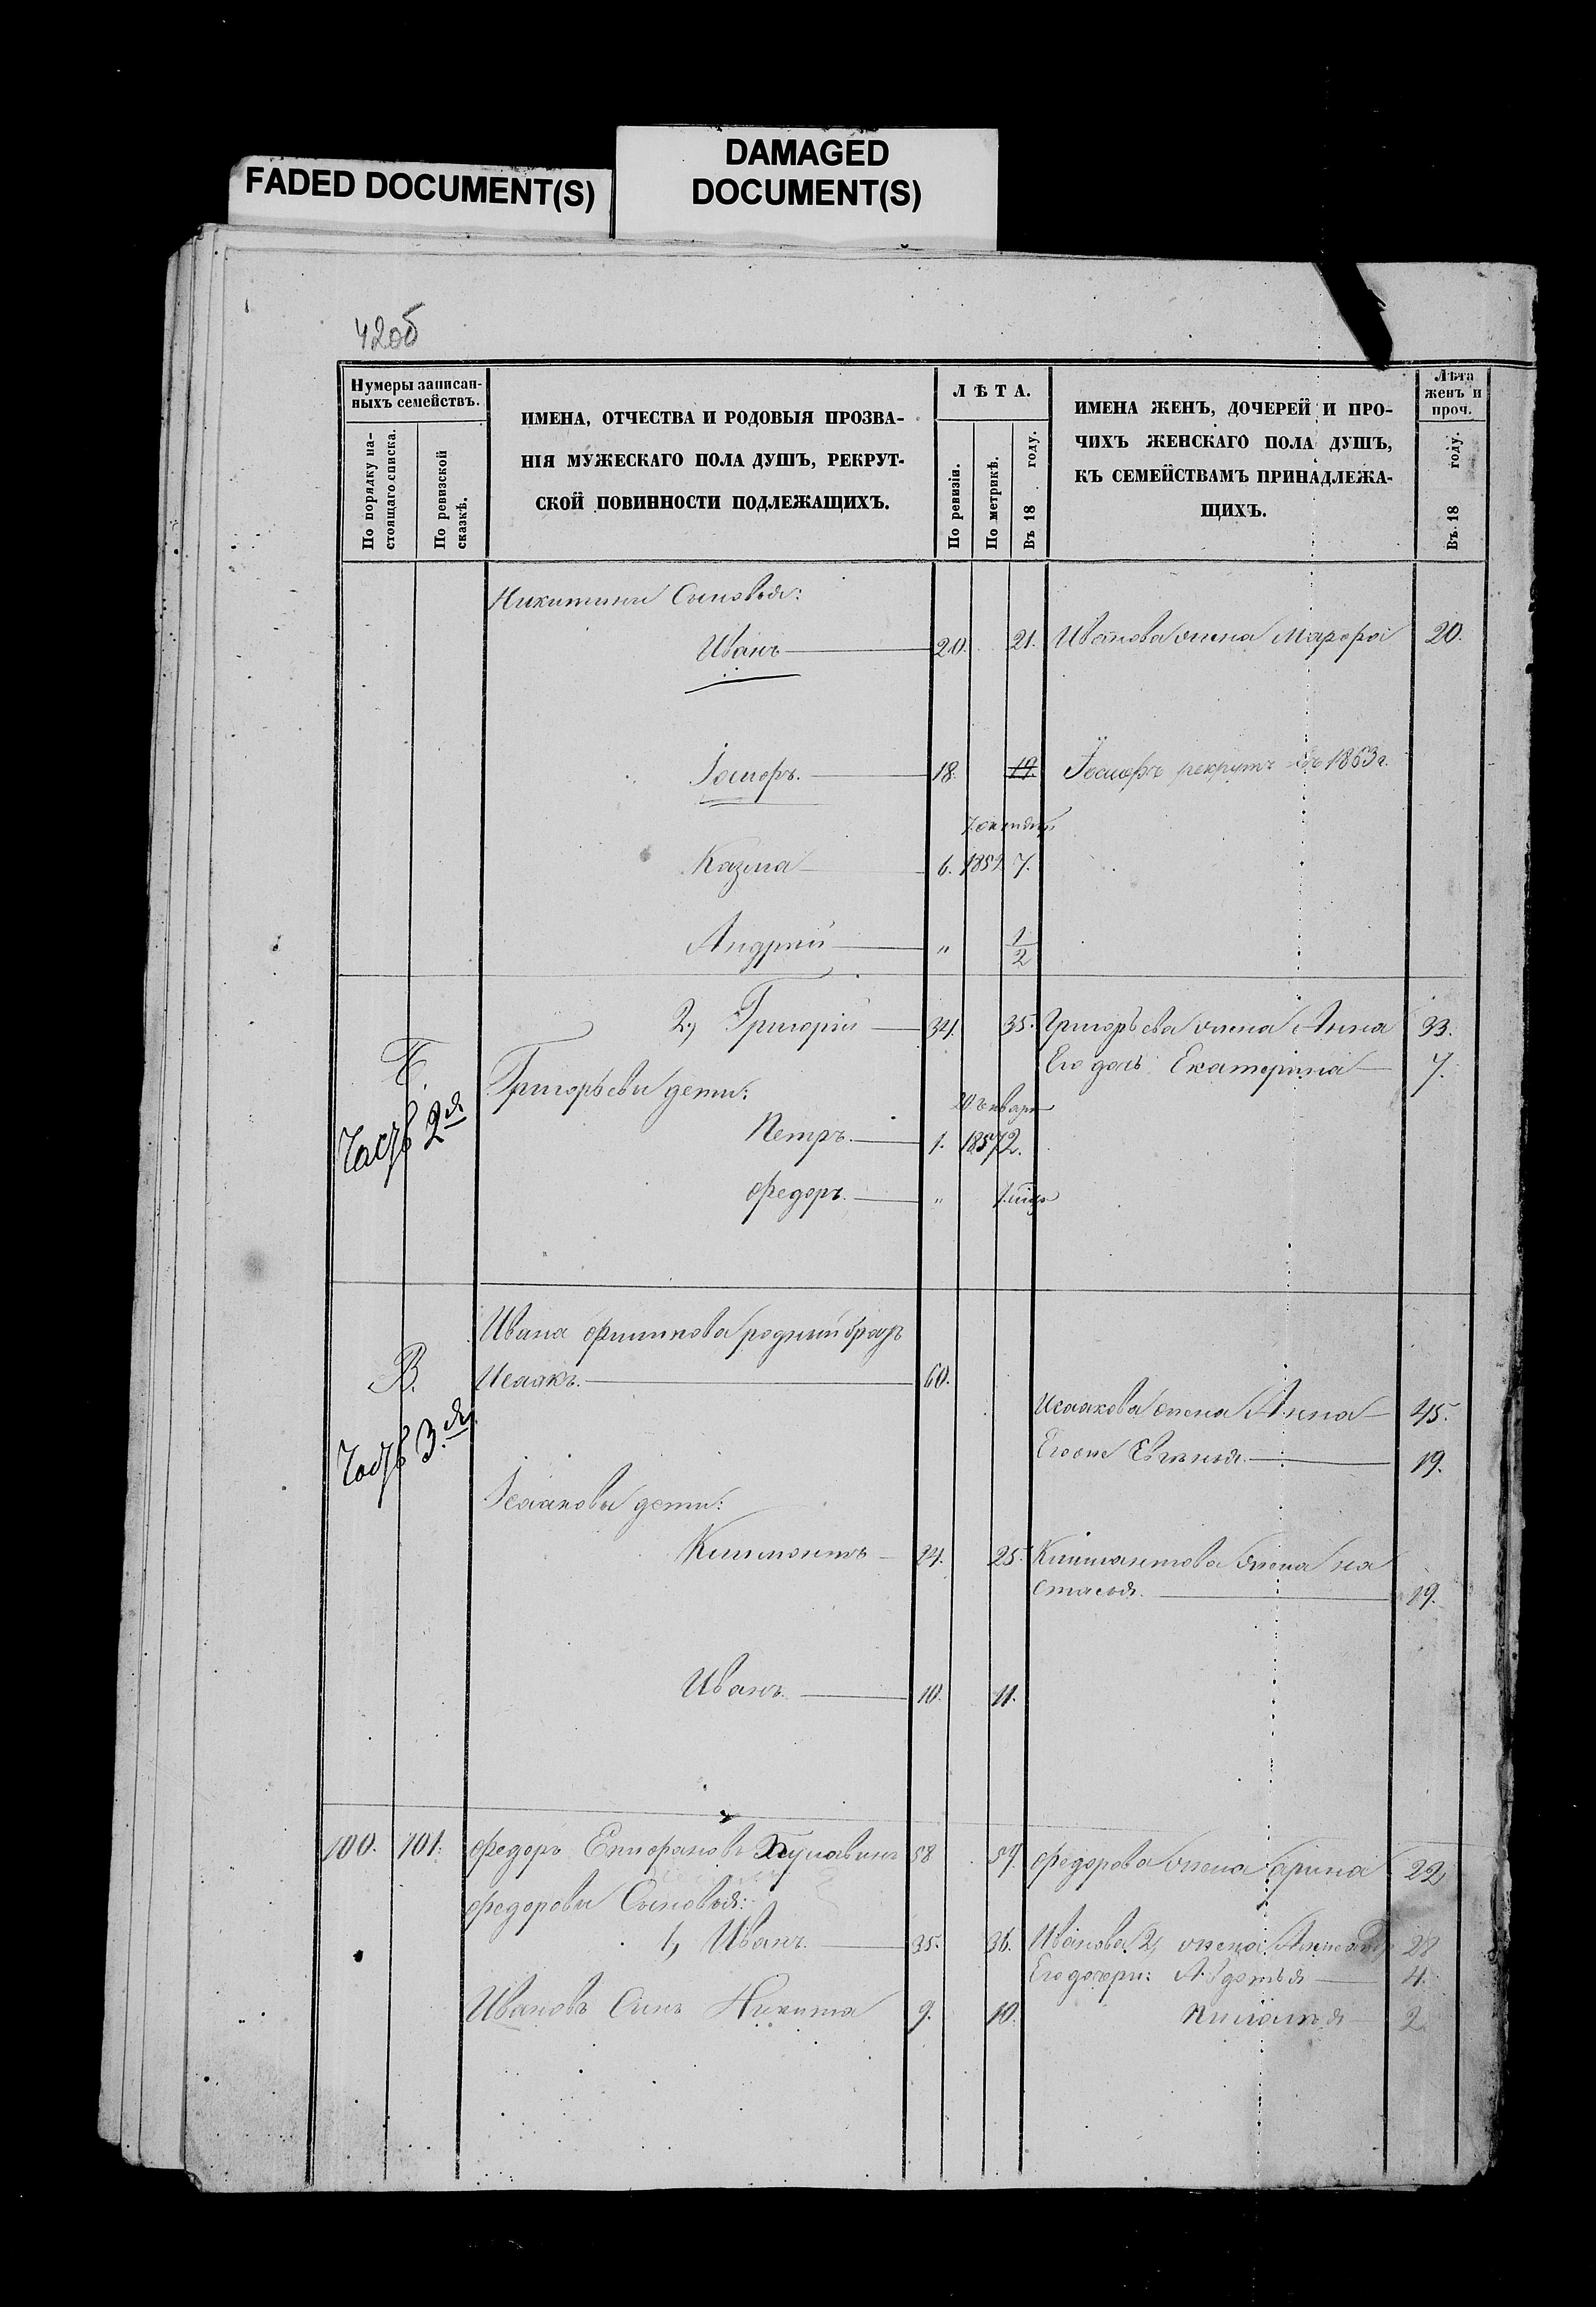 FADED DOCUMENT(S)
DAMAGED
DOCUMENT(S)
42об
Нумеры записан-
ныхъ семействъ.
По порядку на-
стоящаго списка.
По ревизской
сказкѣ.
ИМЕНА, ОТЧЕСТВА И РОДОВЫЯ ПРОЗВА-
НІЯ МУЖЕСКАГО ПОЛА ДУШЪ, РЕКРУТ-
СКОЙ ПОВИННОСТИ ПОДЛЕЖАЩИХЪ.
ЛѢТА.
По ревизіи.
По метрикѣ.
Въ 18 году.
ИМЕНА ЖЕНЪ, ДОЧЕРЕЙ И ПРО-
ЧИХЪ ЖЕНСКАГО ПОЛА ДУШЪ,
КЪ СЕМЕЙСТВАМЪ ПРИНАДЛЕЖА-
ЩИХЪ.
Лѣта
женъ и
проч.
Въ 18 году.
Никитины Сыновья:
Иванъ 20. 21. Иванова жена Марфа 20.
Іосифъ. 18. 19. Іосифъ рекрутъ въ 1863 г.
7. октября
Казма 6. 1852 7.
Андрій " 1/2
2., Григорій 34. 35. Григорьева жена Анна 33.
Его дочь Екатерина 7.
Б.
Часть 2я
Григорьевы дети:
20 января
Петръ. 1. 1857 2.
Федоръ. "
Ивана родный братъ
В. Исаакъ. 60.
Исаакова жена Анна 45.
Часть 3.я
19.
Исааковы дети:
24. 25. жена На
стасья. 19.
Иванъ. 10. 11.
100. 101. Федоръ 58 59. Федорова жена Арина 22
Федоровы Сыновья:
1, Иванъ. 35. 36. Иванова 2, жена 28
Его дочери: Авдотья 4.
Ивановъ Сынъ Никита 9. 10. Пилагея 2